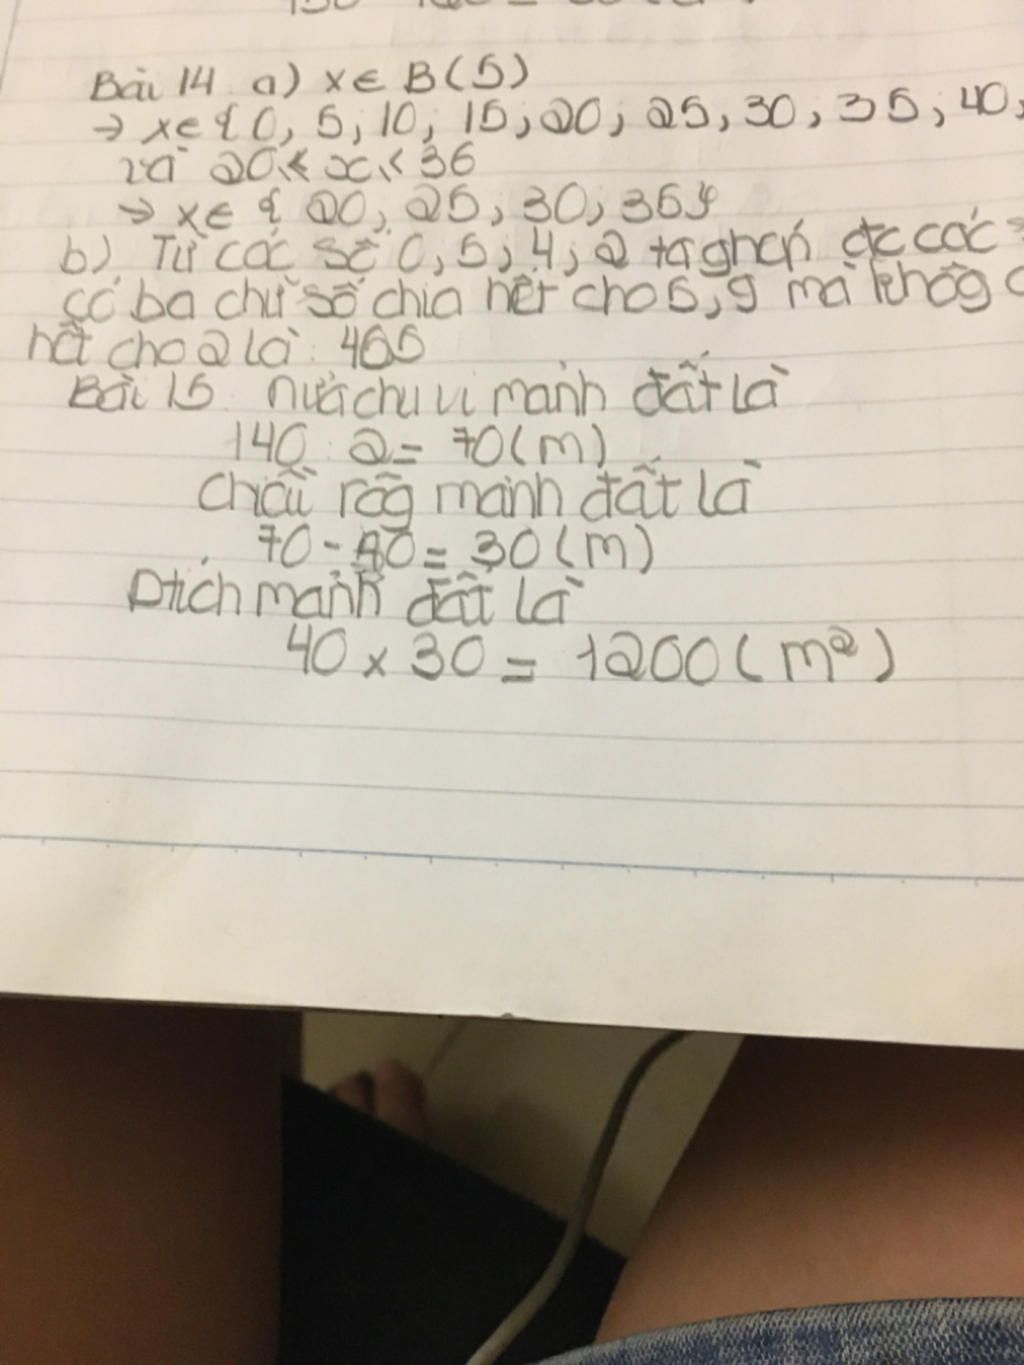 Bài 14 a) x ∈ B(5)
→ x ∈ { 0, 5, 10, 15; 20; 25, 30, 35, 40,
và 20 ≤ x ≤ 36
→ x ∈ { 20, 25, 30, 35}
b) Từ các số 0, 5, 4, 2 ta ghép đc các
có ba chữ số chia hết cho 5, 9 mà khôg
hết cho 2 là: 405
Bài 15 nửa chu vi mảnh đất là
140 : 2 = 70 (m)
chiều rộg mảnh đất là
70 - 40 = 30 (m)
Dtích mảnh đất là
40 x 30 = 1200 (m²)